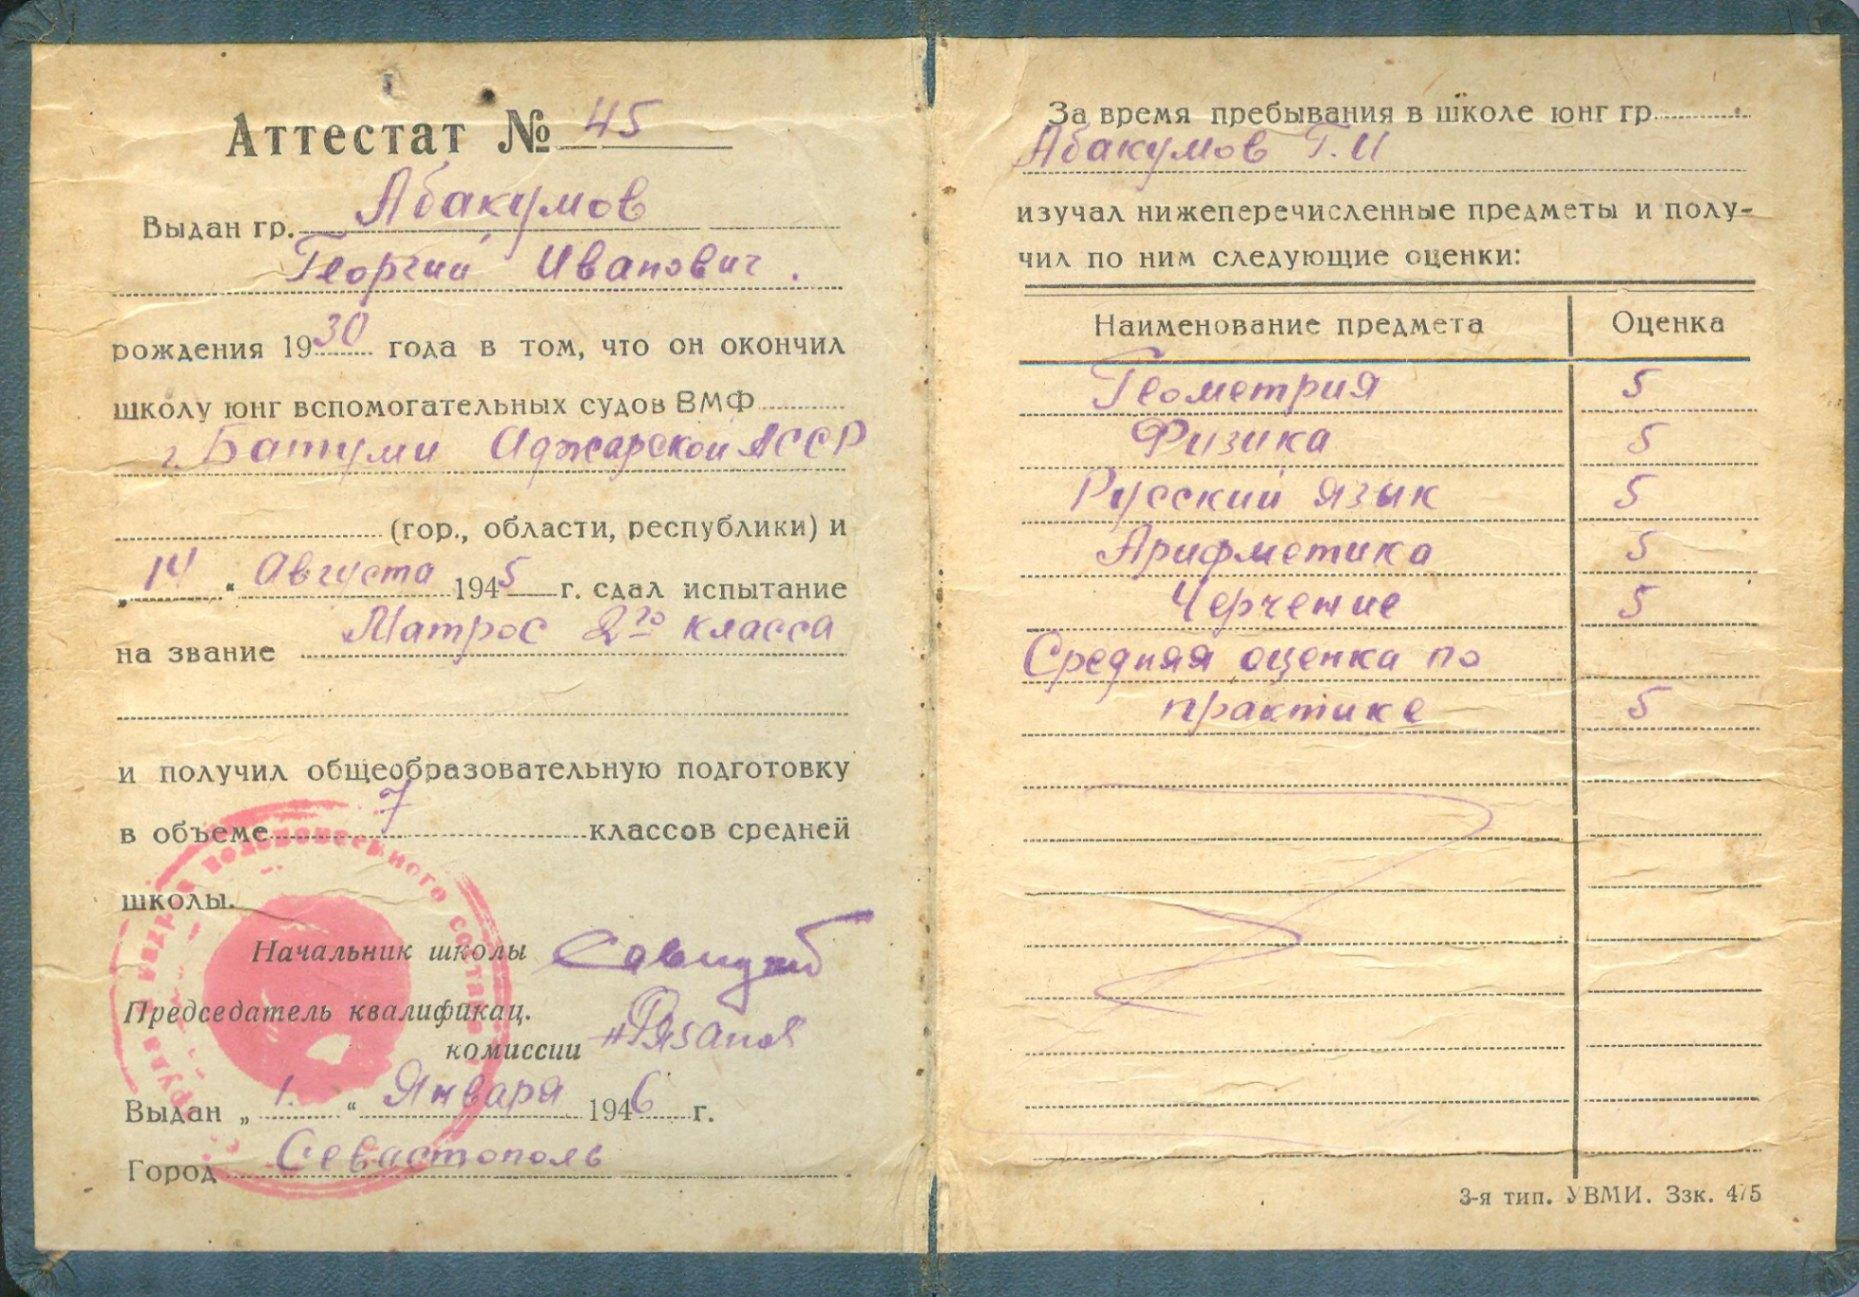 Аттестат № 45
Выдан гр. Абакумов
Георгий Иванович.
рождения 1930 года в том, что он окончил
школу юнг вспомогательных судов ВМФ
г. Батуми Аджарской АССР
(гор., области, республики) и
„14“ Августа 1945 г. сдал испытание
на звание Матрос 2го класса
и получил общеобразовательную подготовку
в объеме 7 классов средней
школы.
Начальник школы
Председатель квалификац.
комиссии Рязанов
Выдан „1.“ Января 1946 г.
Город Севастополь
За время пребывания в школе юнг гр.
Абакумов Г.И
изучал нижеперечисленные предметы и полу-
чил по ним следующие оценки:
Наименование предмета Оценка
Геометрия 5
Физика 5
Русский язык 5
Арифметика 5
Черчение 5
Средняя оценка по
практике 5
3-я тип. УВМИ. Ззк. 475